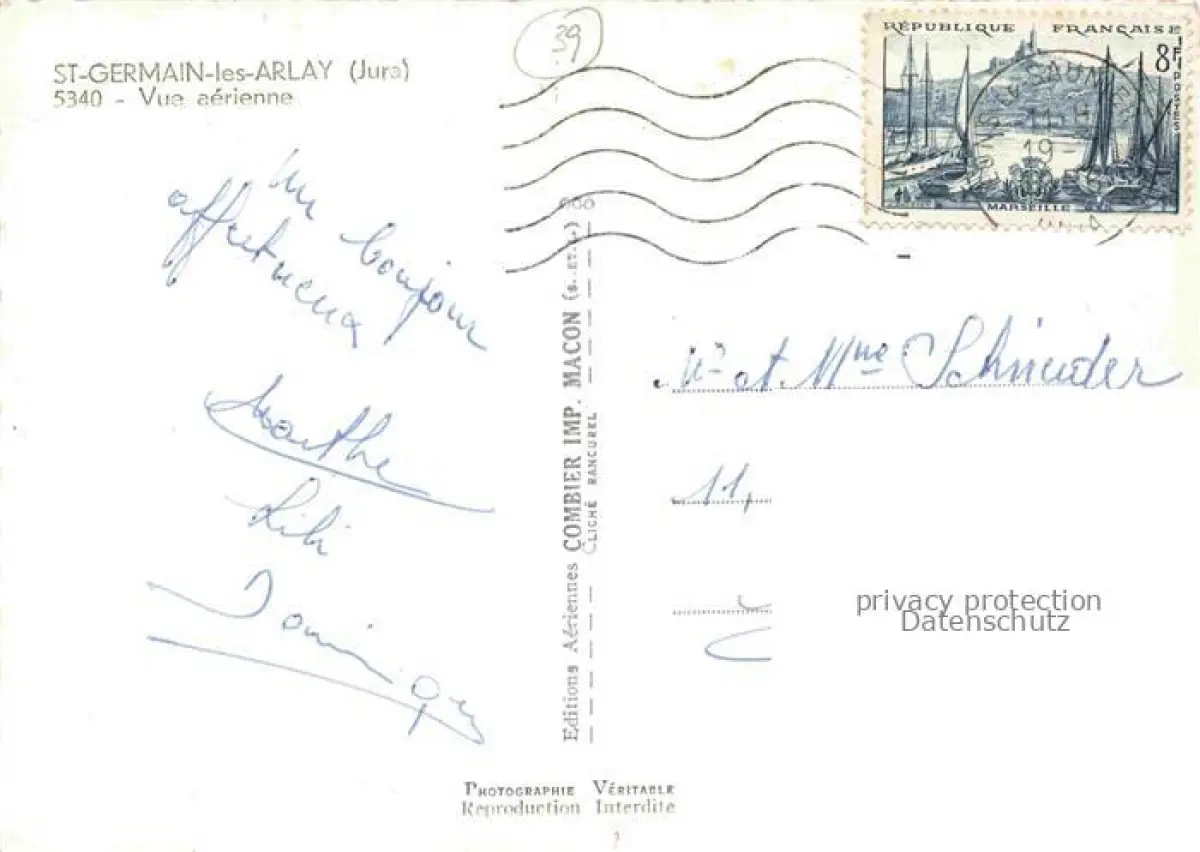 ST-GERMAIN-les-ARLAY (Jura)
5340 - Vue aérienne
39
RÉPUBLIQUE FRANÇAISE
8F
POSTES
MARSEILLE
11 H
19 -
Un bonjour
affectueux
Marthe
Lili
Editions Aériennes COMBIER IMP. MACON (S.-ET-L.)
CLICHÉ RANCUREL
Mr et Mme Schneider
11,
privacy protection
Datenschutz
PHOTOGRAPHIE VÉRITABLE
Reproduction Interdite